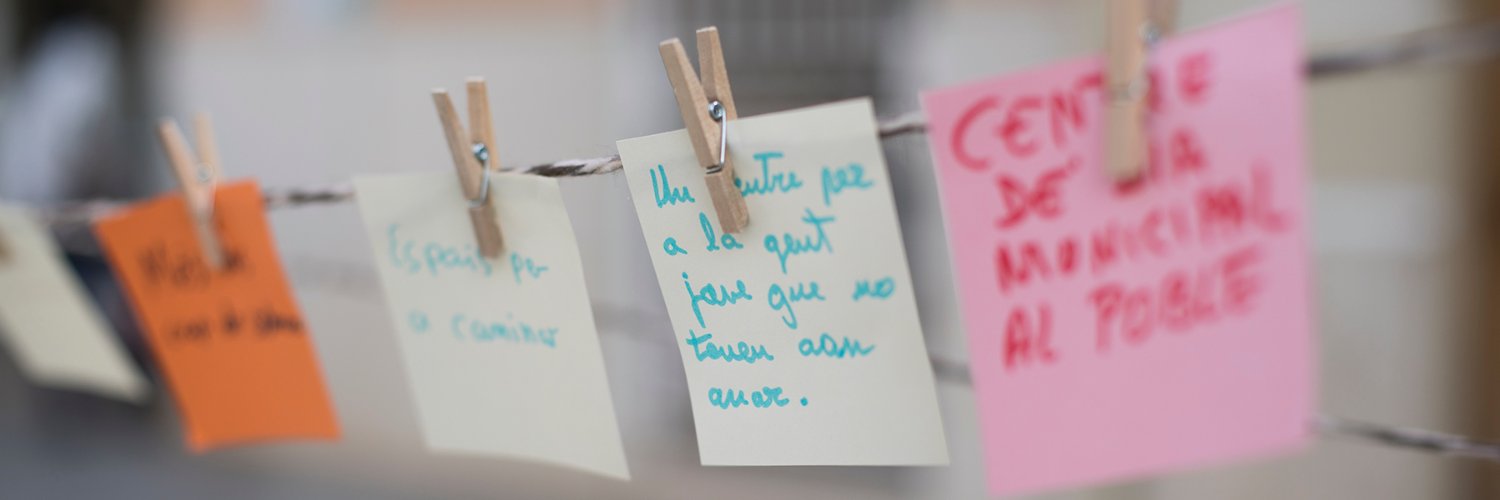 Espais per
a caminar
Un centre per
a la gent
jove que no
tenen aon
anar.
CENTRE
DE DIA
MUNICIPAL
AL POBLE